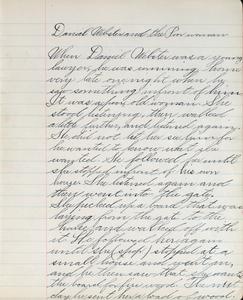 Daniel Webster and the Poor woman
When Daniel Webster was a young
lawyer, he was coming home
very late one night when he
saw something in front of him.
It was a poor old woman. She
stood listening, then walked
a little further, and listened again.
He did not let her see him for
he wanted to know what she
wanted. He followed her until
she stopped in front of his own
house. She listened again and
then went into the gate.
She picked up a board that was
laying from the gate to the
house, and walked off with
it. He followed her again
until she stopped at a
small house and went in,
and he then saw that she wanted
the board for fire wood. The next
day he sent her a load of wood